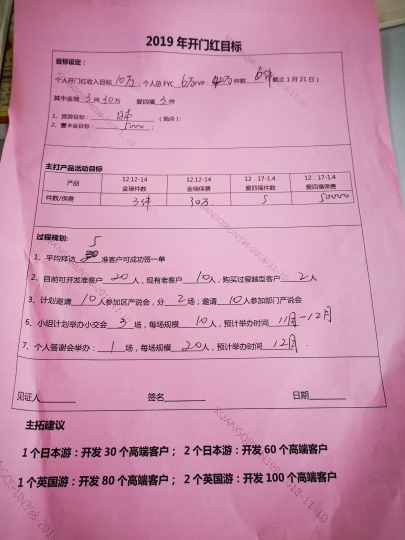 2019 年开门红目标
目标设定：
个人开门红收入目标 10万 ，个人总 FYC 6万 FVP：40万 件数 6件 （截止 1 月 21 日）
其中金瑞 3 件 30万 爱四福 3 件
1、旅游目标： 日本 （地点）；
2、壹卡会目标： 5000 ；
主打产品活动目标
产品 12.12-14 金瑞件数 12.12-14 金瑞保费 12．17-1.4 爱四福件数 12．17-1.4 爱四福保费
件数/保费 3件 30万 5 50000
过程规划：
1、平均拜访 5 准客户可成功签一单
2、目前可开发准客户 20 人，现有老客户 10 人，购买过星越型客户 2 人
3、计划邀请 10 人参加区产说会，分 2 场；邀请 10 人参加部门产说会
6、小组计划举办小交会 3 场，每场规模 10 人，预计举办时间 11月-12月
7、个人答谢会举办： 1 场，每场规模 20 人，预计举办时间 12月 .
见证人 签名 日期
主拓建议
1 个日本游：开发 30 个高端客户； 2 个日本游：开发 60 个高端客户
1 个英国游：开发 80 个高端客户； 2 个英国游：开发 100 个高端客户